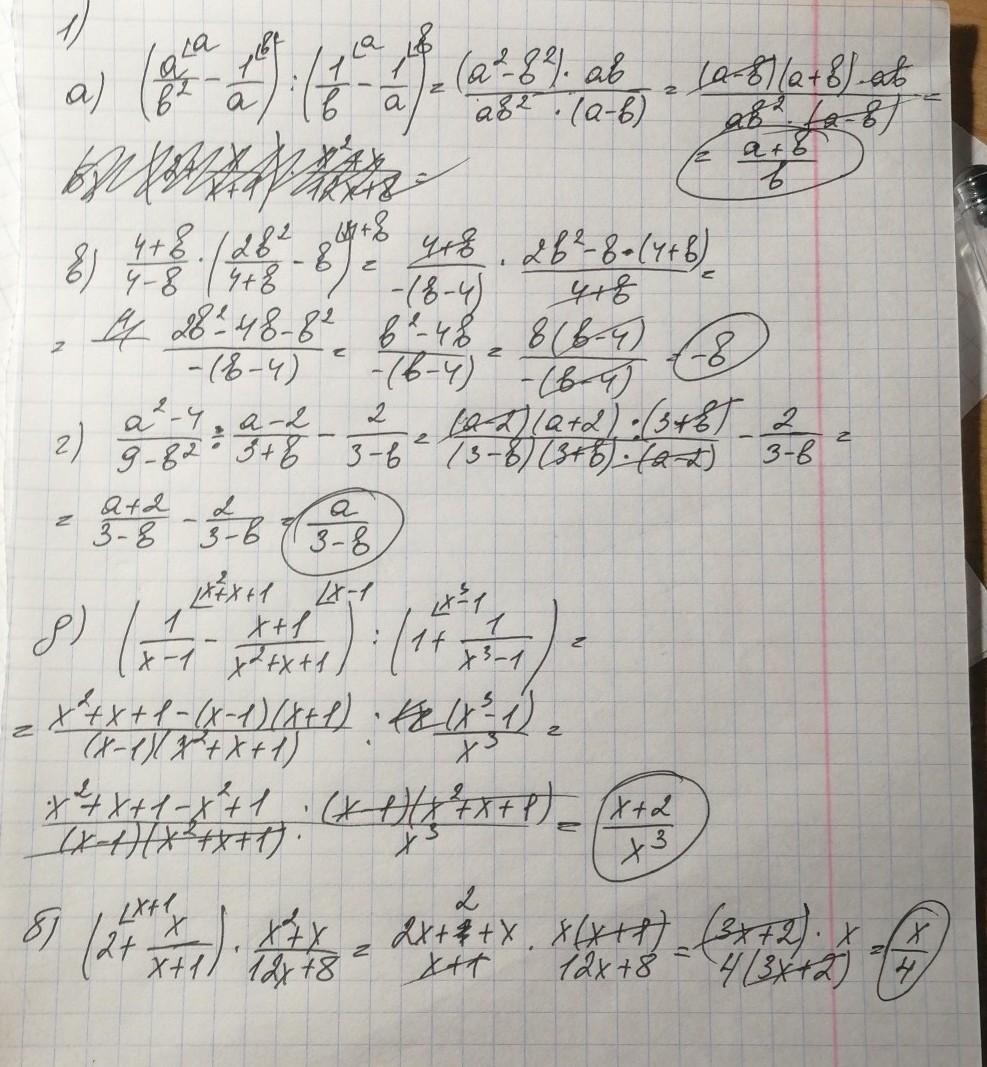 1)
а) (a⌊a/b² − 1⌊b²/a) : (1⌊a/b − 1⌊b/a) = (a²−b²)·ab / ab²·(a−b) = (a−b)(a+b)·ab / ab²·(a−b) =
= (a+b)/b
в) (4+b)/(4−b) · (2b²/(4+b) − b⌊4+b) = (4+b)/−(b−4) · (2b²−b·(4+b))/(4+b) =
= (2b²−4b−b²)/−(b−4) = (b²−4b)/−(b−4) = b(b−4)/−(b−4) = −b
г) (a²−4)/(9−b²) : (a−2)/(3+b) − 2/(3−b) = (a−2)(a+2)·(3+b) / (3−b)(3+b)·(a−2) − 2/(3−b) =
= (a+2)/(3−b) − 2/(3−b) = a/(3−b)
д) (1⌊x²+x+1/(x−1) − (x+1)⌊x−1/(x²+x+1)) : (1⌊x³−1 + 1/(x³−1)) =
= (x²+x+1−(x−1)(x+1)) / (x−1)(x²+x+1) · (x³−1)/x³ =
(x²+x+1−x²+1) / (x−1)(x²+x+1) · (x−1)(x²+x+1)/x³ = (x+2)/x³
б) (2⌊x+1 + x/(x+1)) · (x²+x)/(12x+8) = (2x+2+x)/(x+1) · x(x+1)/(12x+8) = (3x+2)·x / 4(3x+2) = x/4